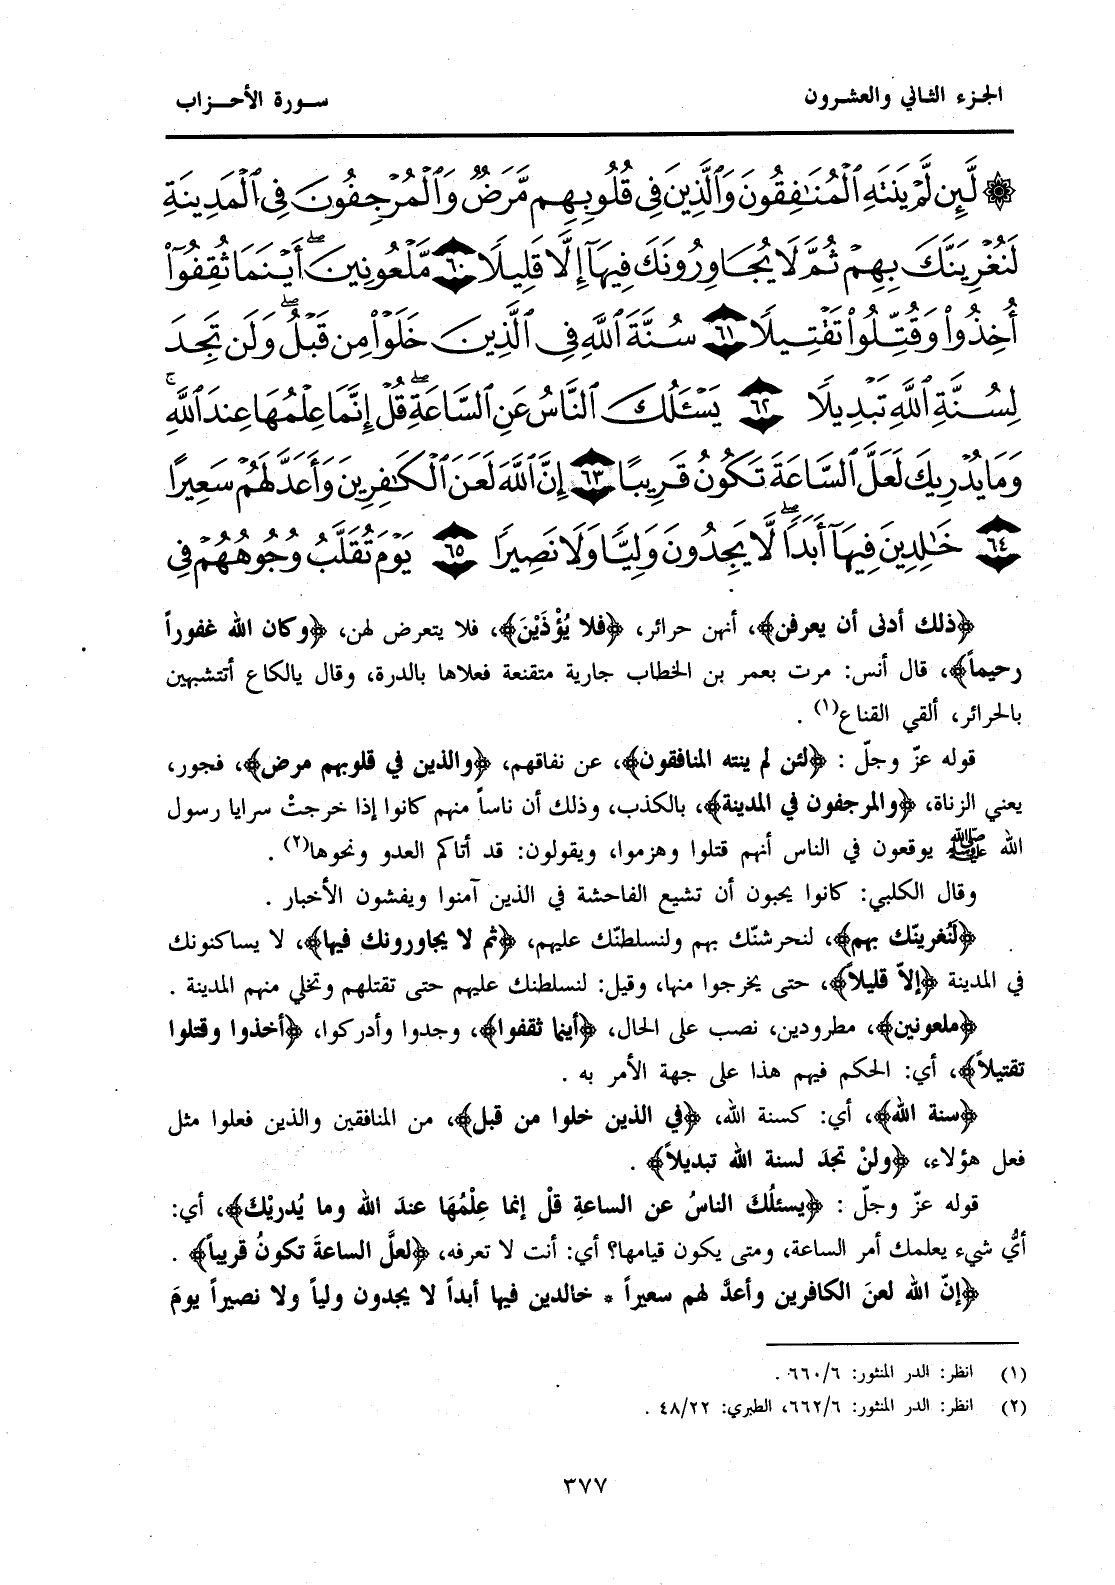 الجزء الثاني والعشرون
سورة الأحزاب
۞ لَّئِن لَّمْ يَنتَهِ ٱلْمُنَٰفِقُونَ وَٱلَّذِينَ فِى قُلُوبِهِم مَّرَضٌ وَٱلْمُرْجِفُونَ فِى ٱلْمَدِينَةِ
لَنُغْرِيَنَّكَ بِهِمْ ثُمَّ لَا يُجَاوِرُونَكَ فِيهَآ إِلَّا قَلِيلًا ٦٠ مَّلْعُونِينَ ۖ أَيْنَمَا ثُقِفُوٓا۟
أُخِذُوا۟ وَقُتِّلُوا۟ تَقْتِيلًا ٦١ سُنَّةَ ٱللَّهِ فِى ٱلَّذِينَ خَلَوْا۟ مِن قَبْلُ ۖ وَلَن تَجِدَ
لِسُنَّةِ ٱللَّهِ تَبْدِيلًا ٦٢ يَسْـَٔلُكَ ٱلنَّاسُ عَنِ ٱلسَّاعَةِ ۖ قُلْ إِنَّمَا عِلْمُهَا عِندَ ٱللَّهِ ۚ
وَمَا يُدْرِيكَ لَعَلَّ ٱلسَّاعَةَ تَكُونُ قَرِيبًا ٦٣ إِنَّ ٱللَّهَ لَعَنَ ٱلْكَٰفِرِينَ وَأَعَدَّ لَهُمْ سَعِيرًا
٦٤ خَٰلِدِينَ فِيهَآ أَبَدًا ۖ لَّا يَجِدُونَ وَلِيًّا وَلَا نَصِيرًا ٦٥ يَوْمَ تُقَلَّبُ وُجُوهُهُمْ فِى
﴿ذلك أدنى أن يعرفن﴾، أنهن حرائر، ﴿فلا يُؤْذَيْنَ﴾، فلا يتعرض لهن، ﴿وكان الله غفوراً
رحيماً﴾، قال أنس: مرت بعمر بن الخطاب جارية متقنعة فعلاها بالدرة، وقال يالكاع أتتشبهين
بالحرائر، ألقي القناع(١) .
قوله عزّ وجلّ : ﴿لئن لم ينته المنافقون﴾، عن نفاقهم، ﴿والذين في قلوبهم مرض﴾، فجور،
يعني الزناة، ﴿والمرجفون في المدينة﴾، بالكذب، وذلك أن ناساً منهم كانوا إذا خرجتْ سرايا رسول
الله ﷺ يوقعون في الناس أنهم قتلوا وهزموا، ويقولون: قد أتاكم العدو ونحوها(٢) .
وقال الكلبي: كانوا يحبون أن تشيع الفاحشة في الذين آمنوا ويفشون الأخبار .
﴿لَنُغرينّك بهم﴾، لنحرشنّك بهم ولنسلطنّك عليهم، ﴿ثم لا يجاورونك فيها﴾، لا يساكنونك
في المدينة ﴿إلاّ قليلاً﴾، حتى يخرجوا منها، وقيل: لنسلطنك عليهم حتى تقتلهم وتخلي منهم المدينة .
﴿ملعونين﴾، مطرودين، نصب على الحال، ﴿أينما ثقفوا﴾، وجدوا وأدركوا، ﴿أخذوا وقتلوا
تقتيلاً﴾، أي: الحكم فيهم هذا على جهة الأمر به .
﴿سنة الله﴾، أي: كسنة الله، ﴿في الذين خلوا من قبل﴾، من المنافقين والذين فعلوا مثل
فعل هؤلاء، ﴿ولنْ تجدَ لسنة الله تبديلاً﴾ .
قوله عزّ وجلّ : ﴿يسئلُكَ الناسُ عن الساعةِ قلْ إنما عِلْمُهَا عندَ الله وما يُدريْكَ﴾، أي:
أيُّ شيء يعلمك أمر الساعة، ومتى يكون قيامها؟ أي: أنت لا تعرفه، ﴿لعلَّ الساعةَ تكونُ قريباً﴾ .
﴿إنّ الله لعنَ الكافرين وأعدَّ لهم سعيراً * خالدين فيها أبداً لا يجدون ولياً ولا نصيراً يومَ
(١) انظر: الدر المنثور: ٦/٦٦٠ .
(٢) انظر: الدر المنثور: ٦/٦٦٢، الطبري: ٢٢/٤٨ .
٣٧٧